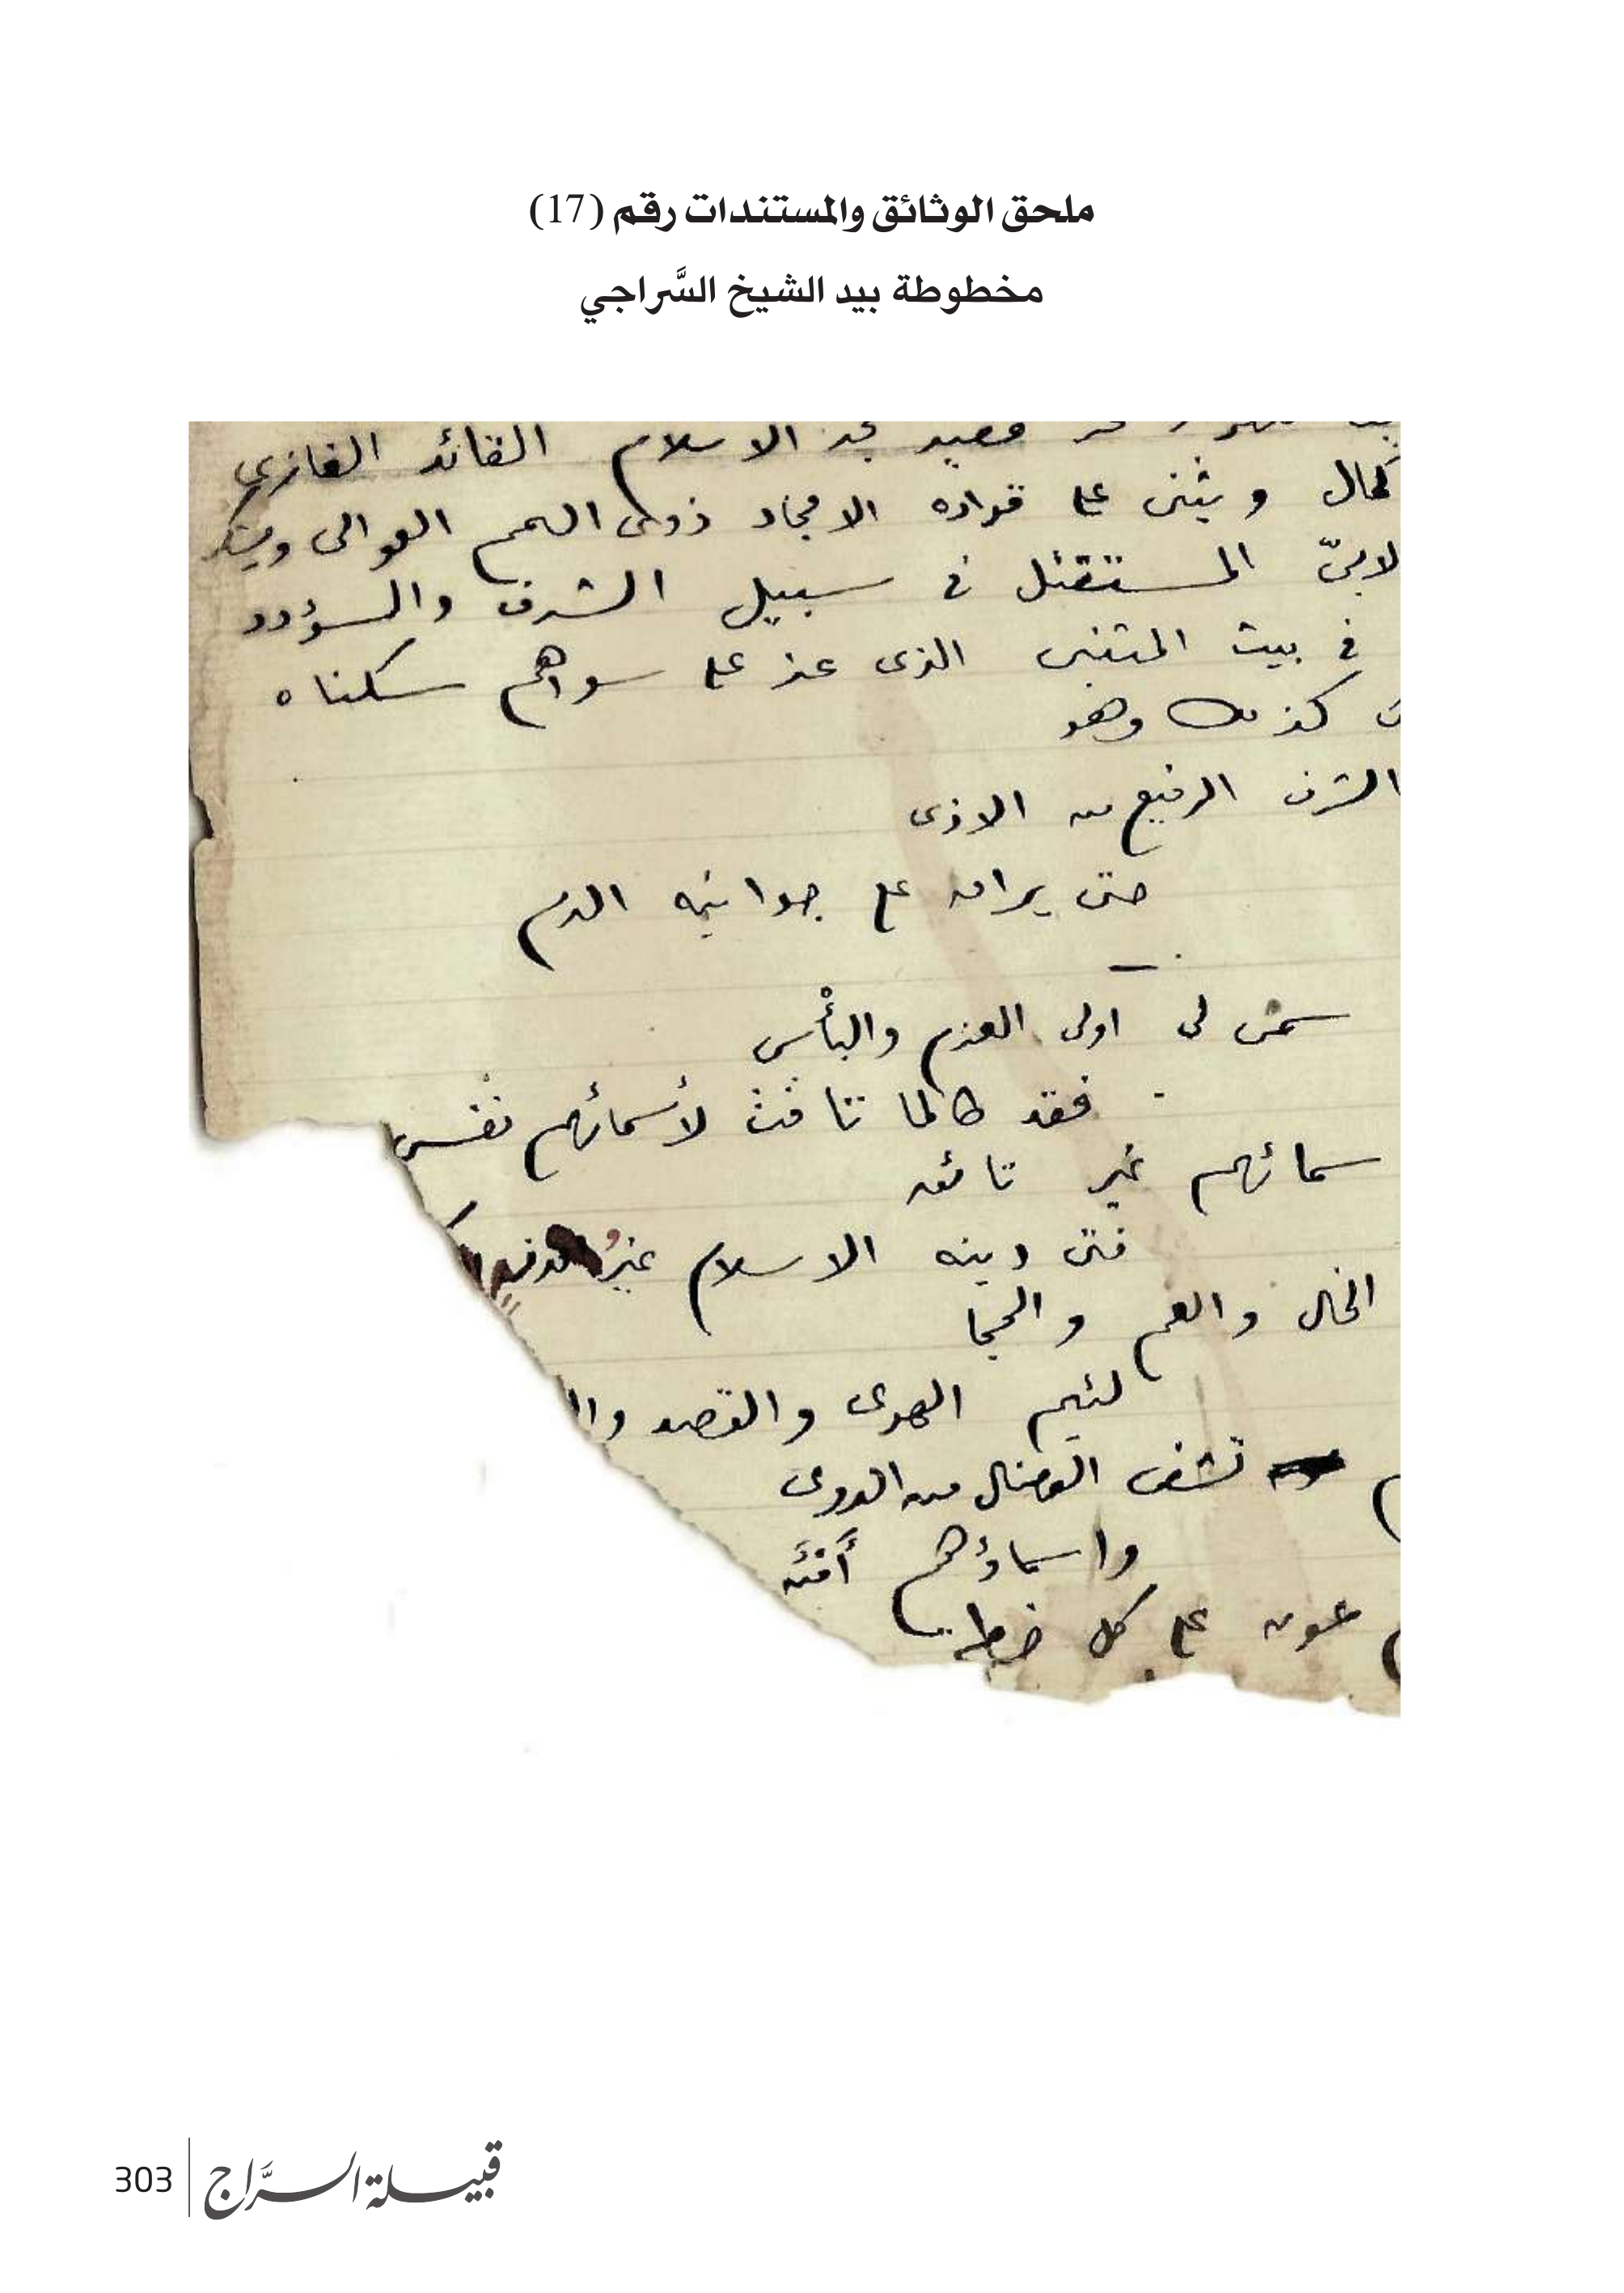 ملحق الوثائق والمستندات رقم (17)
مخطوطة بيد الشيخ السَّراجي
مجد الاسلام القائد الغازى
كمال ويثنى على قواده الامجاد ذوى الهمم العوالى
لابىّ المستقتل فى سبيل الشرف والسؤدد
فى بيت المتنبى الذى عز على سواهم سكناه
كذلك وهو
الشرف الرفيع من الاذى
حتى يراق على جوانبه الدم
سمّ لى اولى العزم والبأْس
فقد طالما تاقت لأسمائهم نفس
سمائهم غير تائق
فتى دينه الاسلام غيرُ
الخال والعم والحجا
لئيم الهوى والقصد وال
تشفى العضال من الدوى
واسماؤهم
عون على كل ضر
قبيلة السَّراج
303